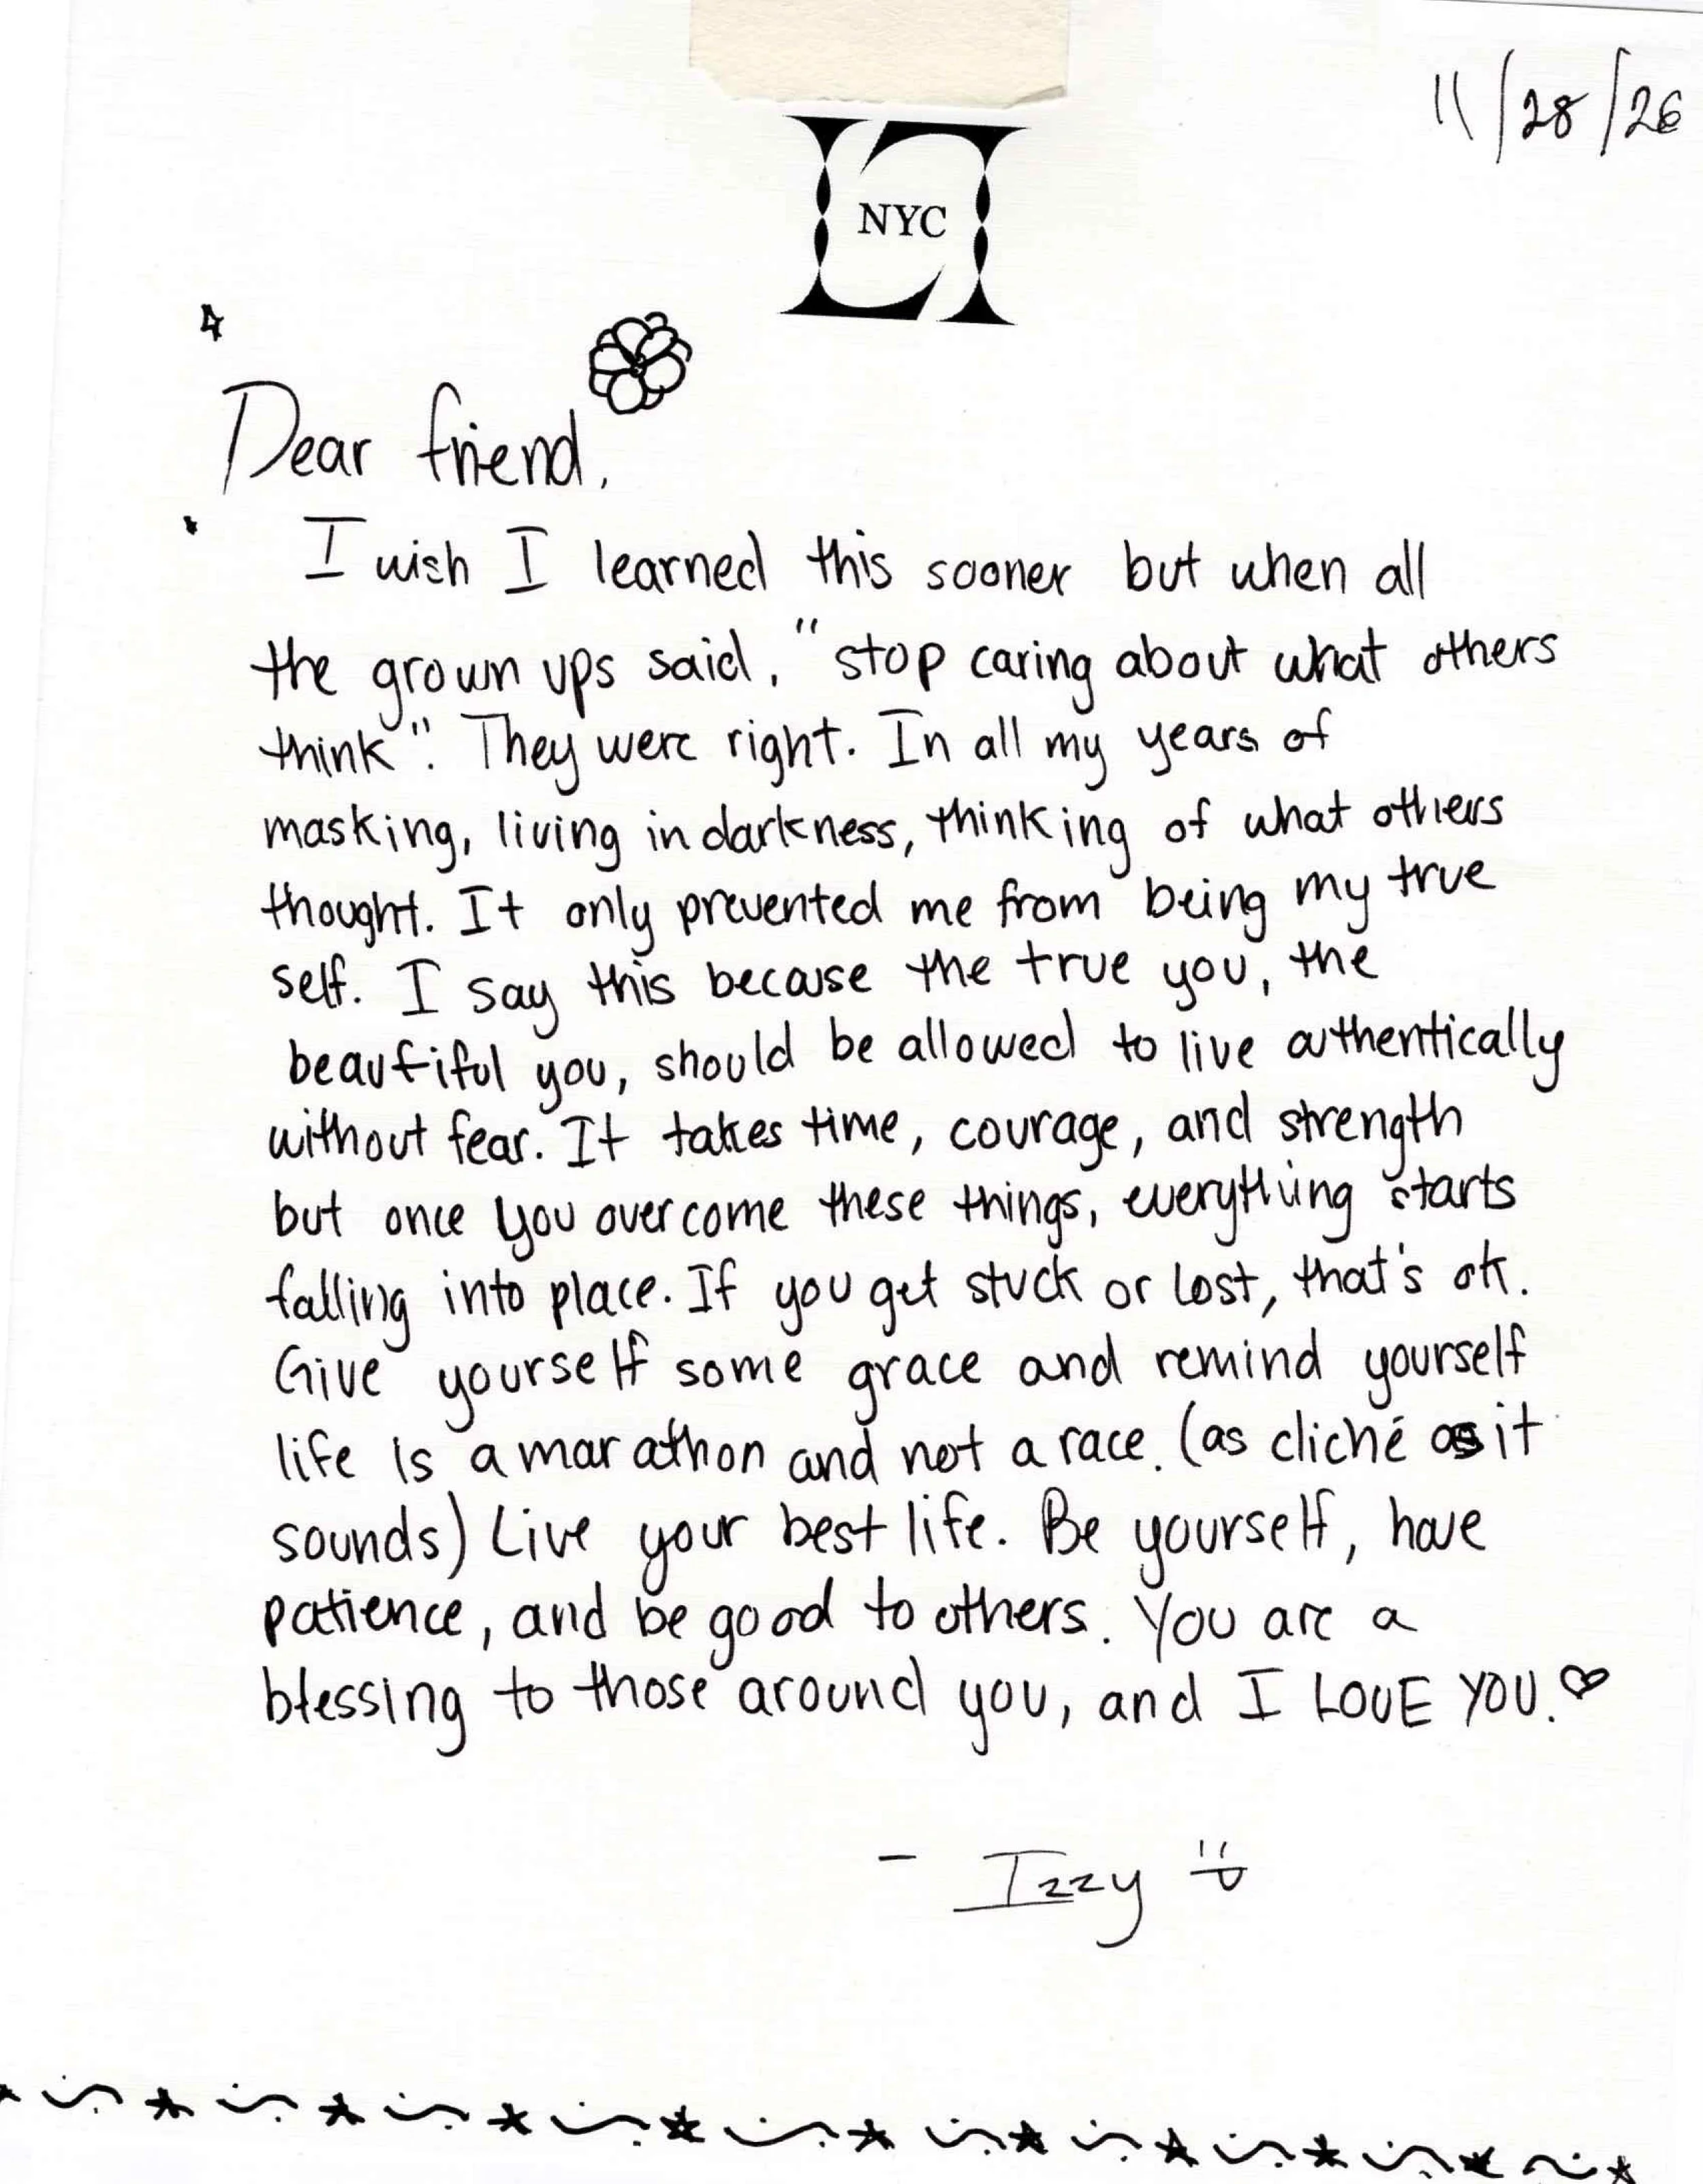 11/28/26
LI
NYC
Dear friend,
I wish I learned this sooner but when all
the grown ups said, "stop caring about what others
think". They were right. In all my years of
masking, living in darkness, thinking of what others
thought. It only prevented me from being my true
self. I say this because the true you, the
beautiful you, should be allowed to live authentically
without fear. It takes time, courage, and strength
but once you overcome these things, everything starts
falling into place. If you get stuck or lost, that's ok.
Give yourself some grace and remind yourself
life is a marathon and not a race. (as cliché as it
sounds) Live your best life. Be yourself, have
patience, and be good to others. You are a
blessing to those around you, and I LOVE YOU. ♡
- Izzy